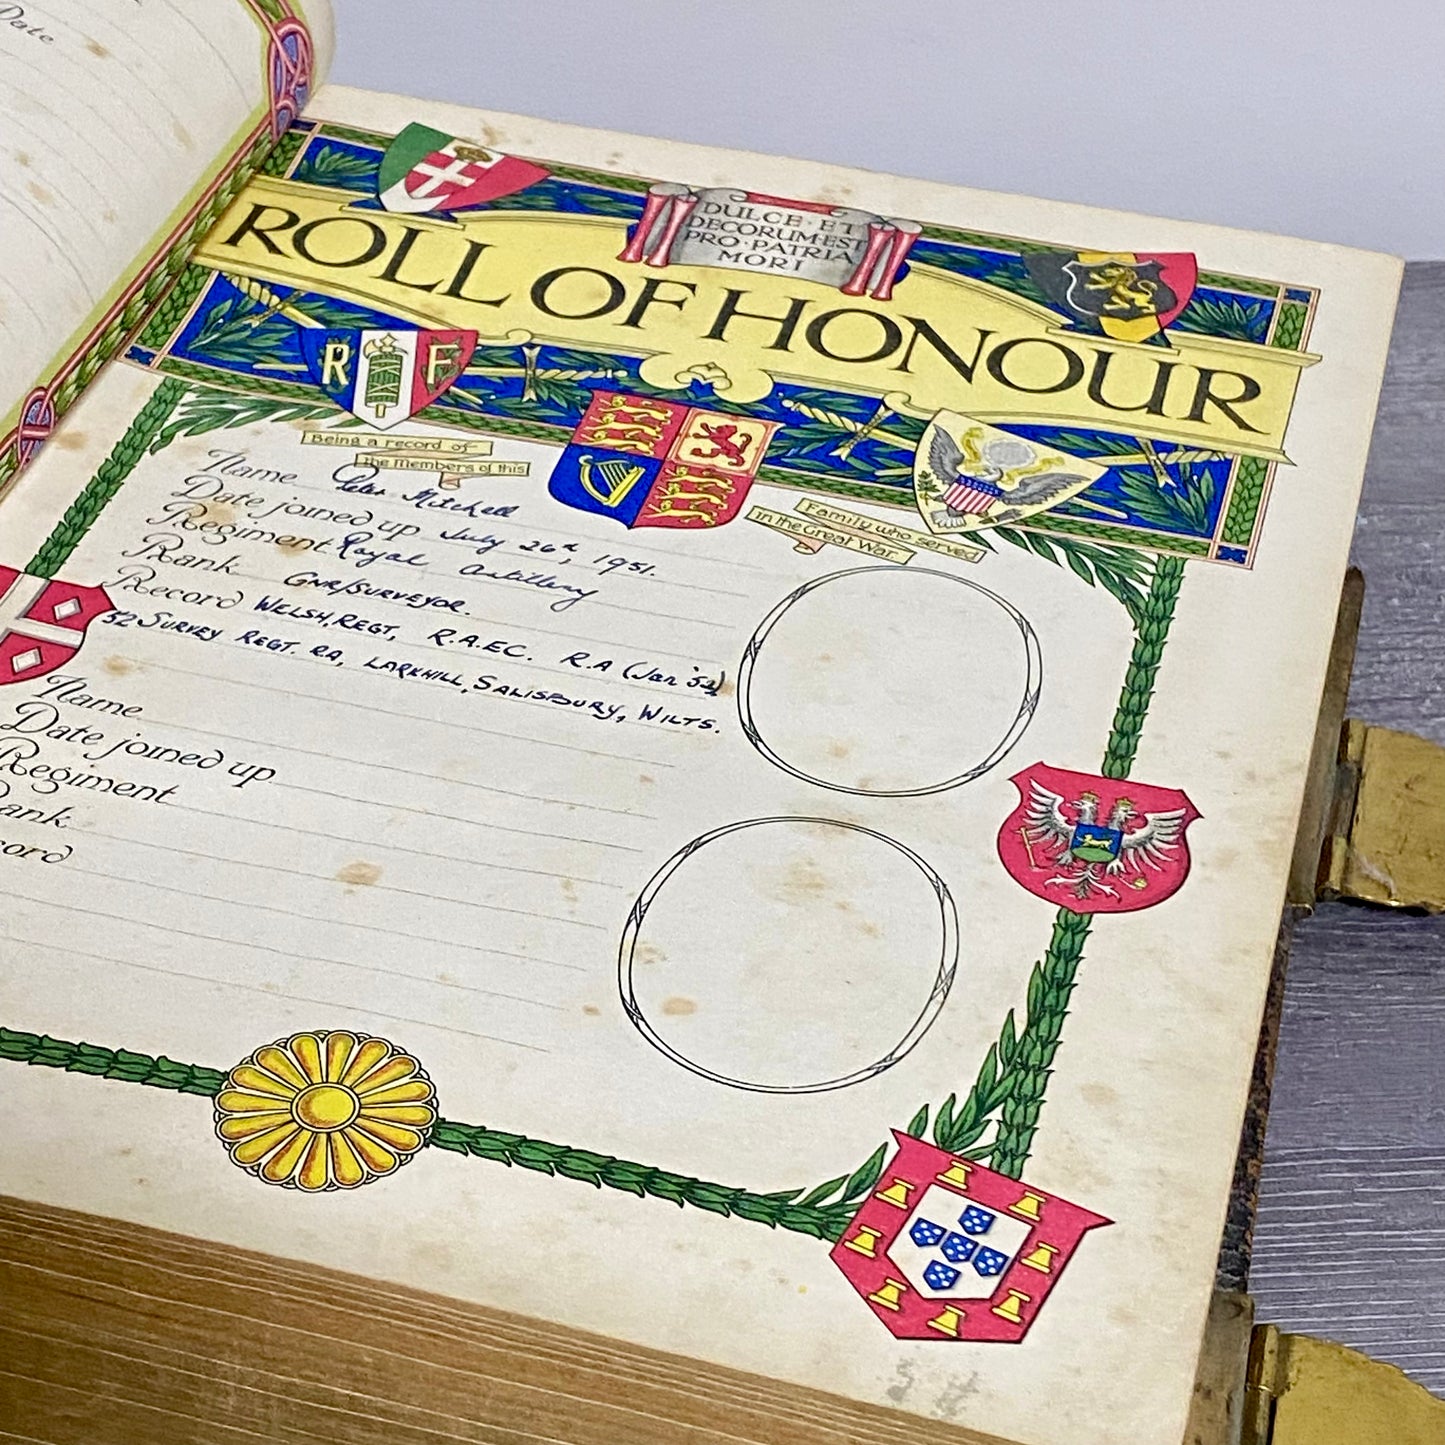 Date
DULCE·ET
DECORUM·EST
PRO·PATRIA
MORI
ROLL OF HONOUR
R F
Being a record of
the members of this
Family who served
in the Great War.
Name Peter Mitchell
Date joined up July 26th, 1951.
Regiment Royal Artillery
Rank GNR/SURVEYOR.
Record WELSH, REGT, R.A.EC. R.A (Jan '52)
52 SURVEY REGT. RA, LARKHILL, SALISBURY, WILTS.
Name
Date joined up
Regiment
Rank
cord